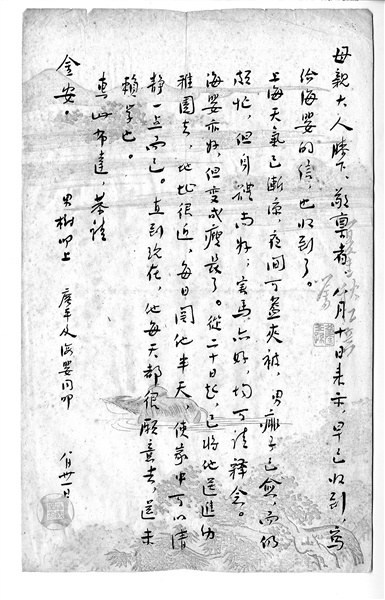 母親大人膝下，敬稟者，八月十日來示，早已收到，寫
給海嬰的信，也收到了。
上海天氣已漸涼，夜間可蓋夾被，男痱子已愈，而仍
頗忙，但身體尚好；害馬亦好，均可請釋念。
海嬰亦好，但變成瘦長了。從二十日起，已將他送進幼
稚園去，地址很近，每日關他半天，使家中可以清
靜一點而已。直到現在，他每天都很願意去，還未
賴學也。
專此布達，恭請
金安。
男樹叩上 廣平及海嬰同叩 八月卅一日